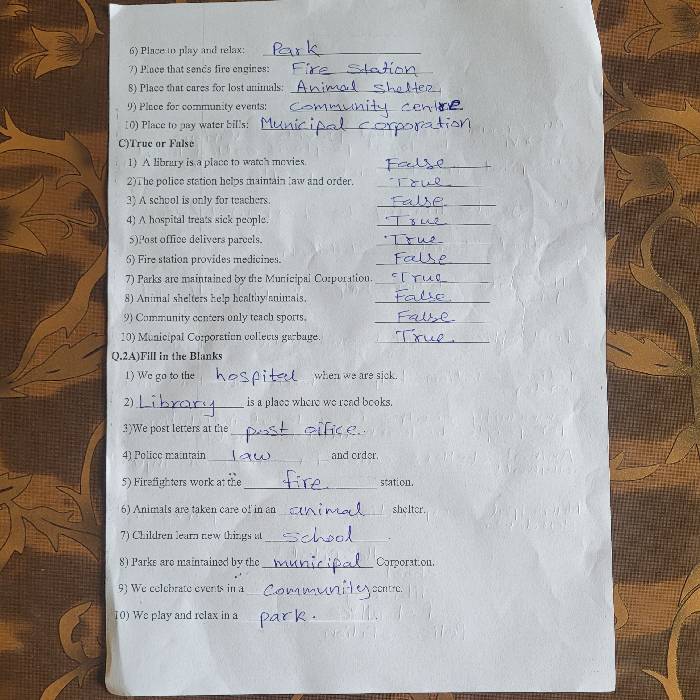 6) Place to play and relax: Park
7) Place that sends fire engines: Fire Station
8) Place that cares for lost animals: Animal Shelter
9) Place for community events: Community centre
10) Place to pay water bills: Municipal corporation
C)True or False
1) A library is a place to watch movies. False
2)The police station helps maintain law and order. True
3) A school is only for teachers. False
4) A hospital treats sick people. True
5)Post office delivers parcels. True
6) Fire station provides medicines. False
7) Parks are maintained by the Municipal Corporation. True
8) Animal shelters help healthy animals. False
9) Community centers only teach sports. False
10) Municipal Corporation collects garbage. True
Q.2A)Fill in the Blanks
1) We go to the hospital when we are sick.
2) Library is a place where we read books.
3)We post letters at the post office.
4) Police maintain law and order.
5) Firefighters work at the fire station.
6) Animals are taken care of in an animal shelter.
7) Children learn new things at school.
8) Parks are maintained by the municipal Corporation.
9) We celebrate events in a community centre.
10) We play and relax in a park.